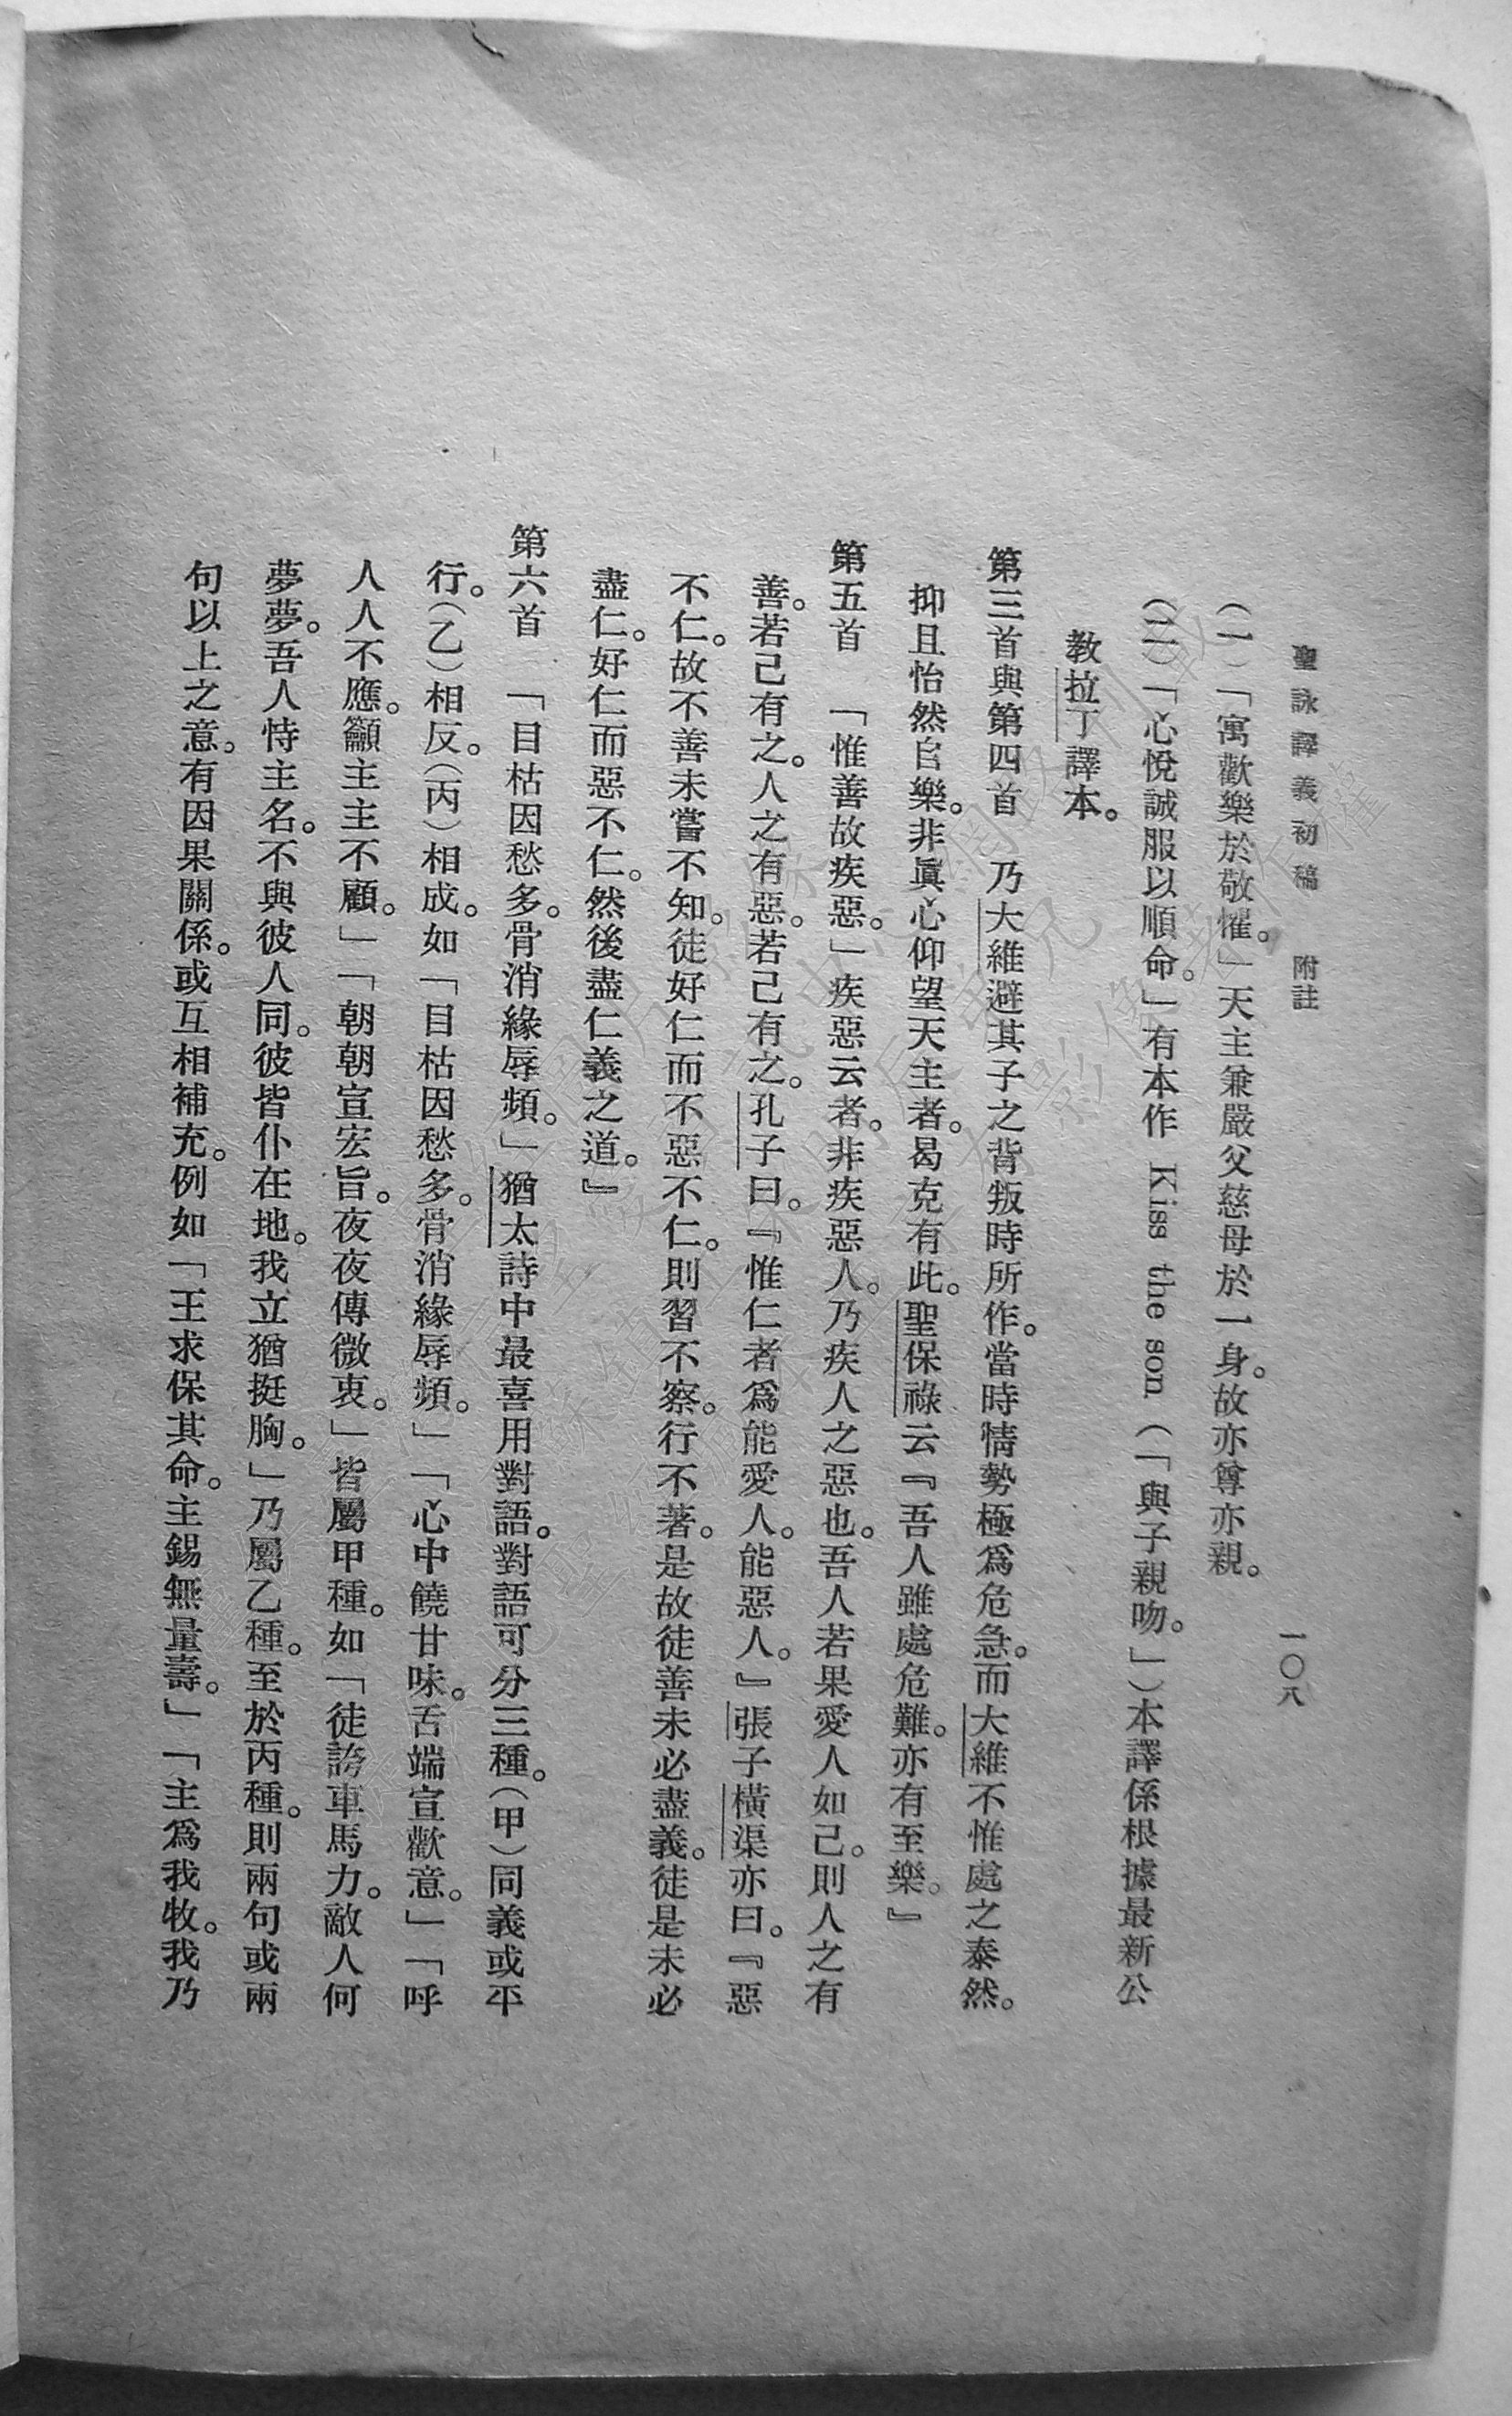 聖詠譯義初稿 附註 一〇八
(一)「寓歡樂於敬懼。」天主兼嚴父慈母於一身。故亦尊亦親。
(二)「心悅誠服以順命。」有本作 Kiss the son (「與子親吻。」)本譯係根據最新公
教拉丁譯本。
第三首與第四首 乃大維避其子之背叛時所作。當時情勢極爲危急。而大維不惟處之泰然。
抑且怡然自樂。非眞心仰望天主者。曷克有此。聖保祿云『吾人雖處危難。亦有至樂。』
第五首 「惟善故疾惡。」疾惡云者。非疾惡人。乃疾人之惡也。吾人若果愛人如己。則人之有
善。若己有之。人之有惡。若己有之。孔子曰。『惟仁者爲能愛人。能惡人。』張子橫渠亦曰。『惡
不仁。故不善未嘗不知。徒好仁而不惡不仁。則習不察。行不著。是故徒善未必盡義。徒是未必
盡仁。好仁而惡不仁。然後盡仁義之道。』
第六首 「目枯因愁多。骨消緣辱頻。」猶太詩中最喜用對語。對語可分三種。(甲)同義或平
行。(乙)相反。(丙)相成。如「目枯因愁多。骨消緣辱頻。」「心中饒甘味。舌端宣歡意。」「呼
人人不應。籲主主不顧。」「朝朝宣宏旨。夜夜傳微衷。」皆屬甲種。如「徒誇車馬力。敵人何
夢夢。吾人恃主名。不與彼人同。彼皆仆在地。我立猶挺胸。」乃屬乙種。至於丙種。則兩句或兩
句以上之意。有因果關係。或互相補充。例如「王求保其命。主錫無量壽。」「主爲我牧。我乃